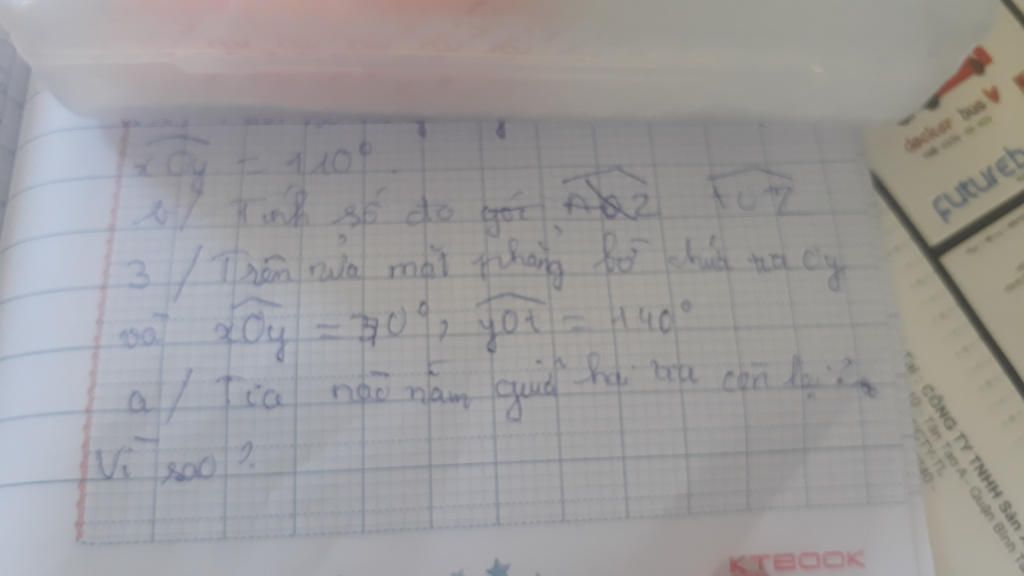 xOy = 110°.
b/ Tính số đo góc AOZ tOZ
3/ Trên nửa mặt phẳng bờ chứa tia Oy
vẽ xOy = 70°, yOt = 140°
a/ Tia nào nằm giữa hai tia còn lại?
Vì sao?
KTBOOK
deskar bus
Futureb
CÔNG TY TNHH Sản